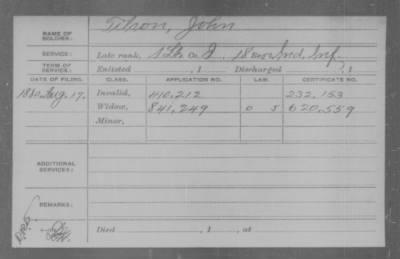 NAME OF SOLDIER: Tilson, John
SERVICE: Late rank, 1 Lt. Co. I, 18 Regt Ind. Inf.
TERM OF SERVICE: Enlisted , 1 Discharged , 1
DATE OF FILING. CLASS. APPLICATION NO. LAW. CERTIFICATE NO.
1880 Aug. 17. Invalid, 410,212 232,153
Widow, 841,249 620,559
Minor,
ADDITIONAL SERVICES:
REMARKS:
Died , 1 , at